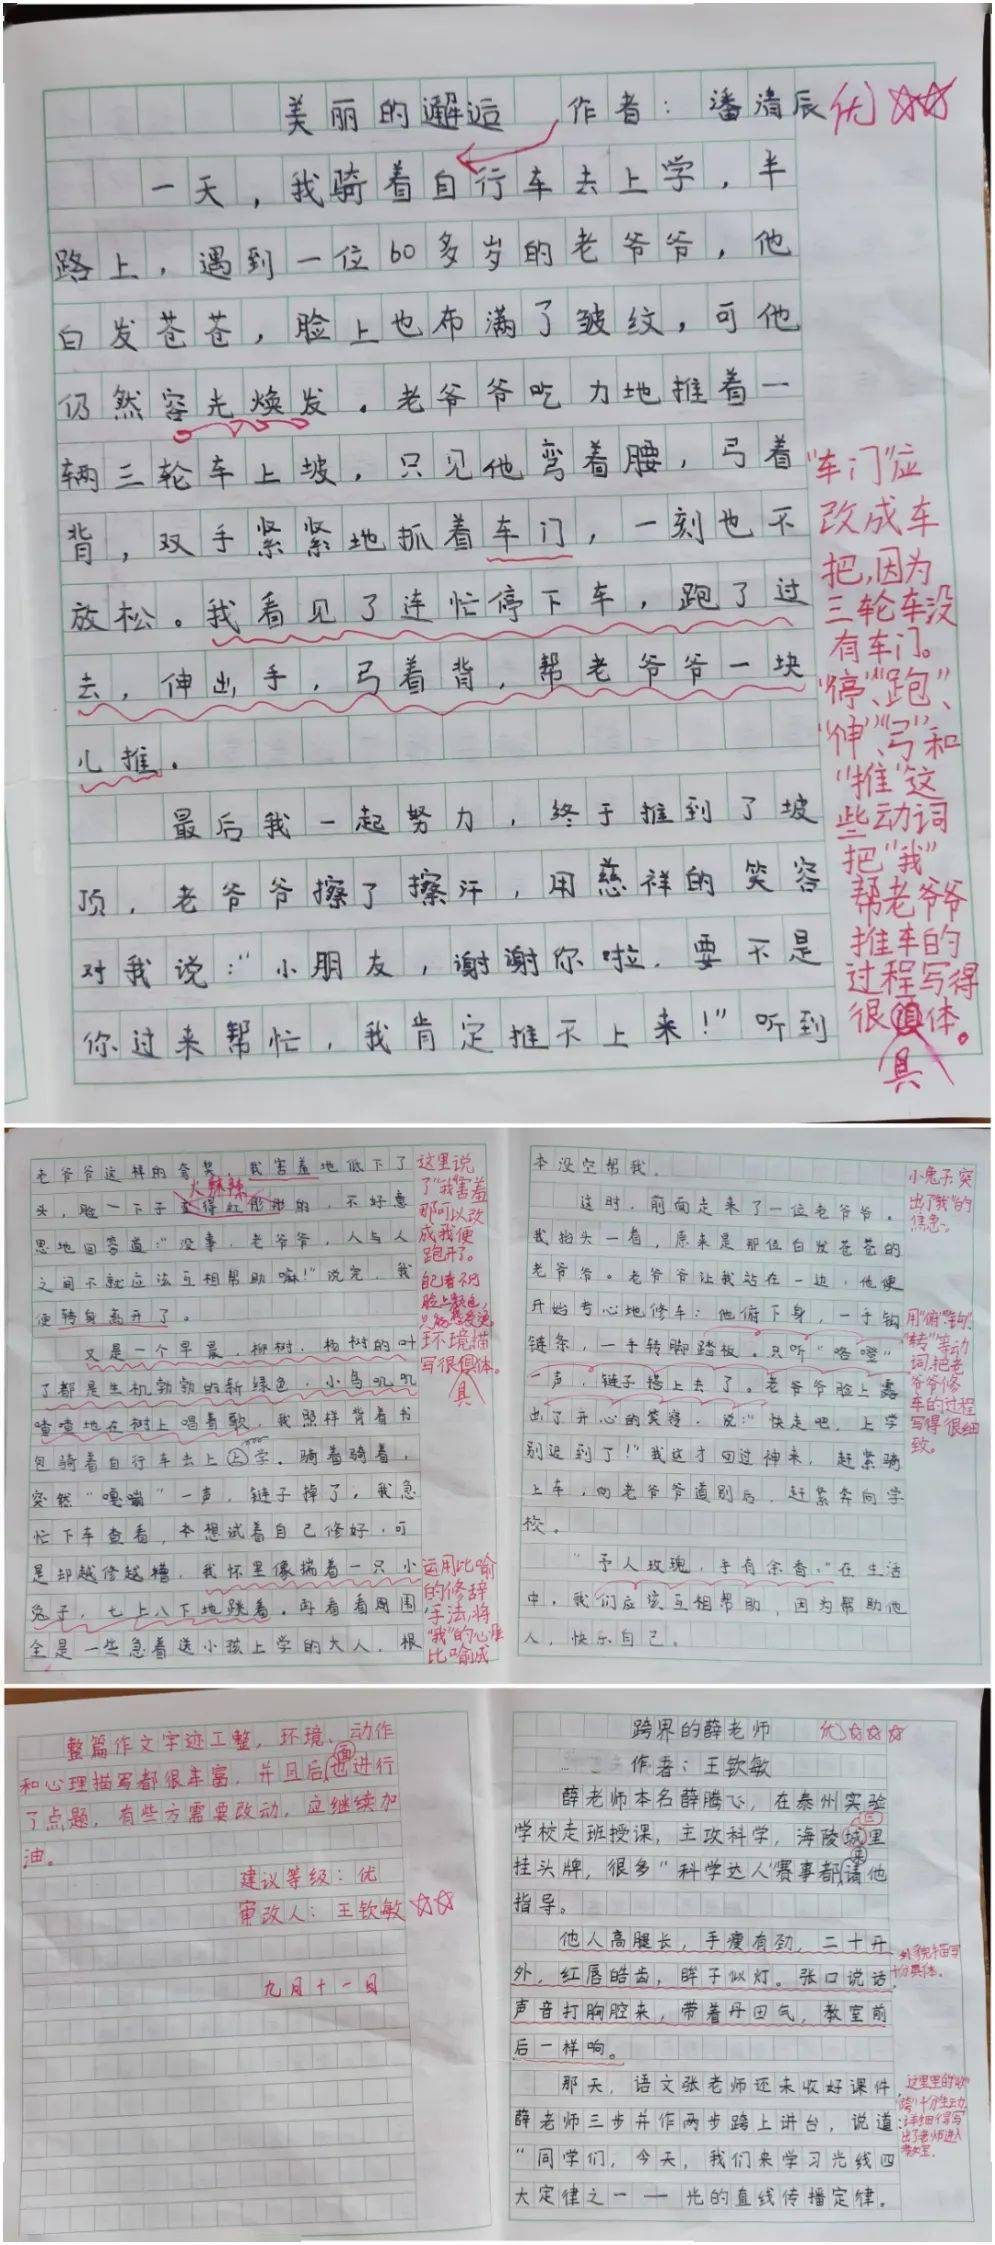 美丽的邂逅 作者：潘清辰 优
一天，我骑着自行车去上学，半
路上，遇到一位60多岁的老爷爷，他
白发苍苍，脸上也布满了皱纹，可他
仍然容光焕发．老爷爷吃力地推着一
辆三轮车上坡，只见他弯着腰，弓着
背，双手紧紧地抓着车门，一刻也不
放松。我看见了连忙停下车，跑了过
去，伸出手，弓着背，帮老爷爷一块
儿推．
最后我一起努力，终于推到了坡
顶，老爷爷擦了擦汗，用慈祥的笑容
对我说：“小朋友，谢谢你啦．要不是
你过来帮忙，我肯定推不上来！”听到
“车门”应
改成车
把，因为
三轮车没
有车门。
“停”、“跑”、
“伸”、“弓”和
“推”这
些动词
把“我”
帮老爷爷
推车的
过程写得
很体。
具
老爷爷这样的夸奖，我害羞地低下了
火辣辣
头，脸一下子变得红彤彤的，不好意
思地回答道：“没事，老爷爷，人与人
之间不就应该互相帮助嘛！”说完，我
便转身离开了。
又是一个早晨，柳树、杨树的叶
了都是生机勃勃的新绿色，小鸟叽叽
喳喳地在树上唱着歌，我照样背着书
包骑着自行车去上上学．骑着骑着，
突然“嘎嘣”一声，链子掉了，我急
忙下车查看，本想试着自己修好，可
是却越修越糟，我怀里像揣着一只小
兔子，七上八下地跳着．再看看周围
全是一些急着送小孩上学的大人，根
这里说
了“我”害羞
那可以改
成我便
跑开了。
自己看不到
脸上颜色
环境描
写很俱体。
具
运用比喻
的修辞
手法，将
“我”的心
比喻成
本没空帮我．
这时，前面走来了一位老爷爷．
我抬头一看，原来是那位白发苍苍的
老爷爷。老爷爷让我站在一边，他便
开始专心地修车：他俯下身，一手钩
链条，一手转脚踏板．只听“咯噔”
一声，链子搭上去了。老爷爷脸上露
出了开心的笑容，说：“快走吧，上学
别迟到了！”我这才回过神来，赶紧骑
上车，向老爷爷道别后，赶紧奔向学
校。
“予人玫瑰，手有余香．”在生活
中，我们应该互相帮助，因为帮助他
人，快乐自己．
小兔子，突
出了“我”的
焦急。
用“俯”“钩”、
“转”等动
词，把老
爷爷修
车的过程
写得很细
致。
整篇作文字迹工整，环境、动作
面
和心理描写都很丰富，并且后也进行
了点题，有些方需要改动，应继续加
油。
建议等级：优
审改人：王钦敏
九月十一日
跨界的薛老师 优
作者：王钦敏
薛老师本名薛腾飞，在泰州实验
学校走班授课，主攻科学，海陵城里
挂头牌，很多“科学达人”赛事都请他
指导。
他人高腿长，手瘦有劲，二十开
外，红唇皓齿，眸子似灯。张口说话，
声音打胸腔来，带着丹田气，教室前
后一样响。
那天，语文张老师还未收好课件，
薛老师三步并作两步跨上讲台，说道：
“同学们，今天，我们来学习光线四
大定律之一——光的直线传播定律。
外貌描写
十分具体。